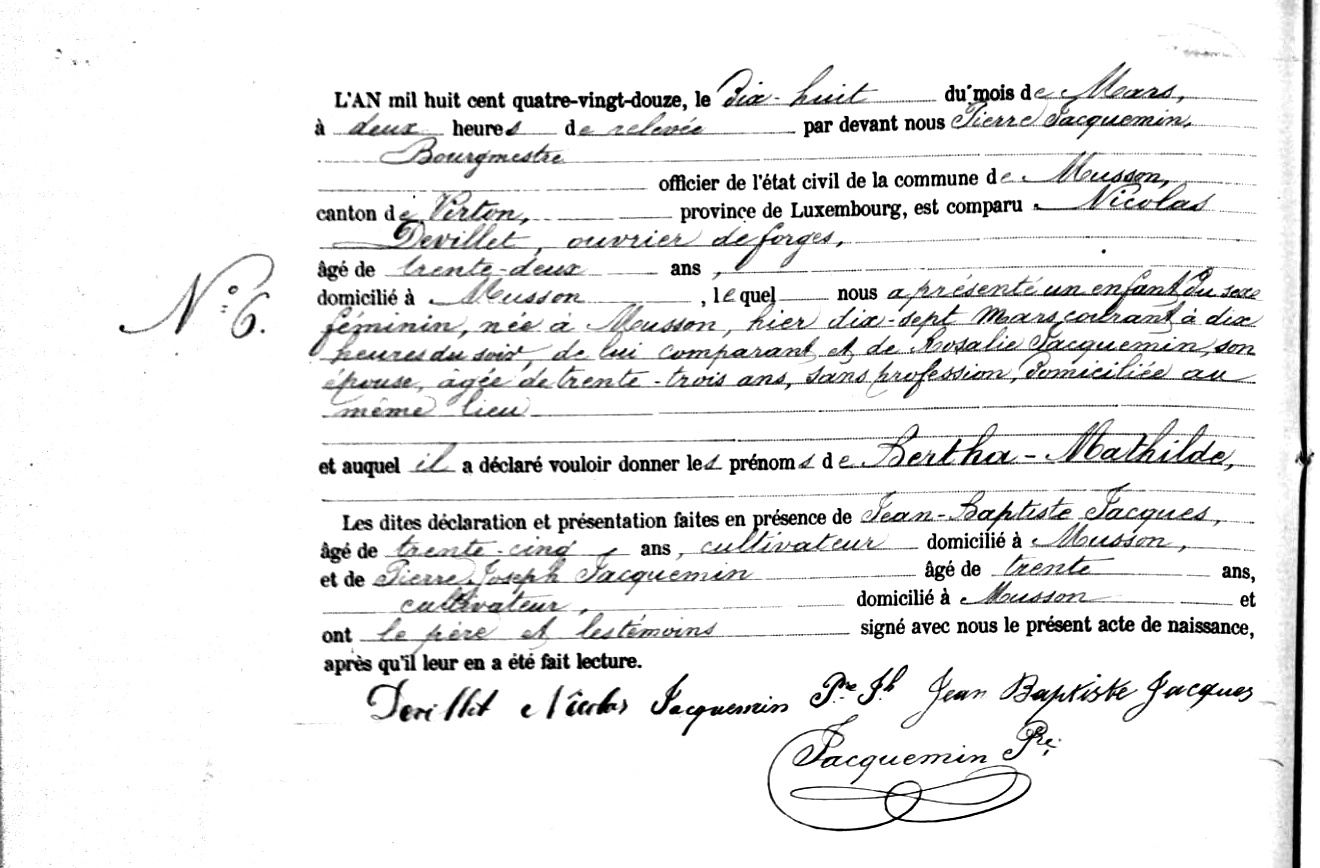 L'AN mil huit cent quatre-vingt-douze, le Dix-huit du mois de Mars,
à deux heures de relevée par devant nous Pierre Jacquemin,
Bourgmestre
officier de l'état civil de la commune de Musson,
canton de Virton, province de Luxembourg, est comparu Nicolas
Devillet, ouvrier de forges,
âgé de trente-deux ans,
domicilié à Musson, lequel nous a présenté un enfant du sexe
N° 6.
féminin, née à Musson, hier dix-sept Mars courant à dix
heures du soir, de lui comparant et de Rosalie Jacquemin, son
épouse, âgée de trente-trois ans, sans profession, domiciliée au
même lieu
et auquel il a déclaré vouloir donner les prénoms de Bertha-Mathilde,
Les dites déclaration et présentation faites en présence de Jean-Baptiste Jacques,
âgé de trente-cinq ans, cultivateur domicilié à Musson,
et de Pierre Joseph Jacquemin âgé de trente ans,
cultivateur, domicilié à Musson et
ont le père et les témoins signé avec nous le présent acte de naissance,
après qu'il leur en a été fait lecture.
Devillet Nicolas Jacquemin Pre Jh Jean Baptiste Jacques
Jacquemin Pre.